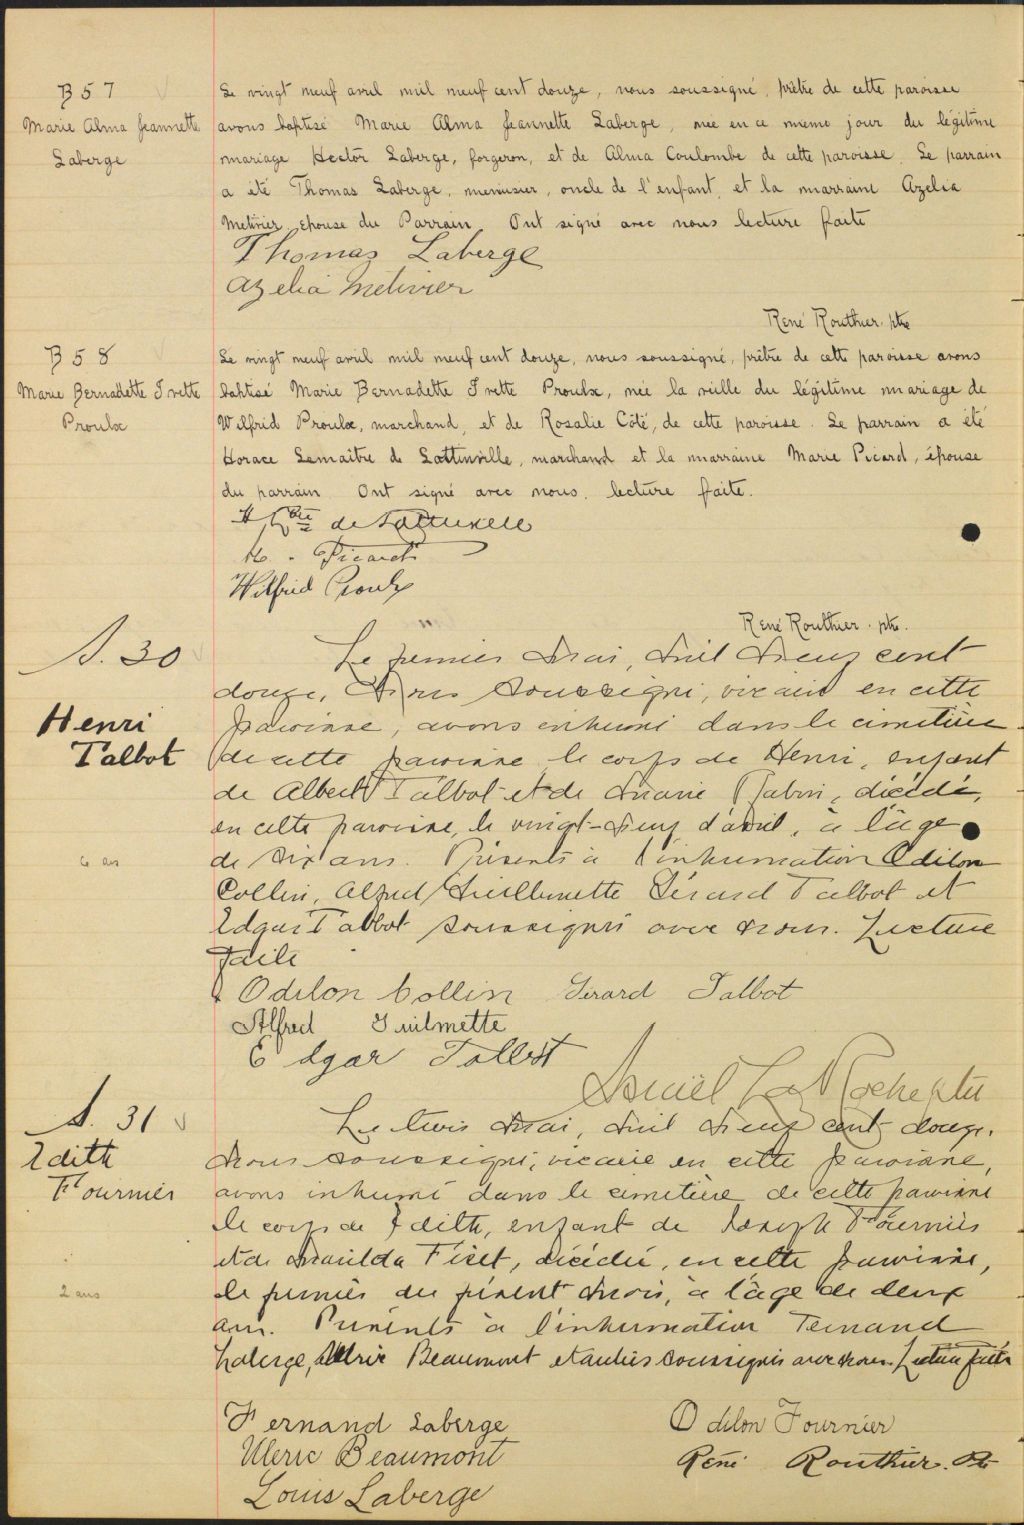 B 57
Marie Alma Jeannette
Laberge
Le vingt neuf avril mil neuf cent douze, nous soussigné, prêtre de cette paroisse
avons baptisé Marie Alma Jeannette Laberge, née en ce même jour du légitime
mariage Hector Laberge, forgeron, et de Alma Coulombe de cette paroisse. Le parrain
a été Thomas Laberge, menuisier, oncle de l'enfant, et la marraine Azelia
Metivier, épouse du Parrain. Ont signé avec nous lecture faite
Thomas Laberge
Azelia Metivier
René Routhier ptre
B 58
Marie Bernadette Ivette
Proulx
Le vingt neuf avril mil neuf cent douze, nous soussigné, prêtre de cette paroisse avons
baptisé Marie Bernadette Ivette Proulx, née la veille du légitime mariage de
Wilfrid Proulx, marchand, et de Rosalie Côté, de cette paroisse. Le parrain a été
Horace Lemaître de Lottinville, marchand et la marraine Marie Picard, épouse
du parrain. Ont signé avec nous, lecture faite.
de Lottinville
Picard
Wilfrid Proulx
René Routhier ptre.
S. 30
Henri
Talbot
6 ans
Le premier Mai, Mil Neuf cent
douze, Nous soussigné, vicaire en cette
paroisse, avons inhumé dans le cimetière
de cette paroisse le corps de Henri, enfant
de Albert Talbot et de Marie, décédé,
en cette paroisse, le vingt-neuf d'avril, à l'âge
de six ans. Présents à l'inhumation Odilon
Collin, Alfred Guillemette Gérard Talbot et
Edgar Talbot soussignés avec nous. Lecture
faite
Odilon Collin Gérard Talbot
Alfred Guilmette
Edgar Talbot
LaRoche ptre
S. 31
Edith
Fournier
2 ans
Le trois Mai, Mil Neuf cent douze,
Nous soussigné, vicaire en cette paroisse,
avons inhumé dans le cimetière de cette paroisse
le corps de Edith, enfant de Joseph Fournier
et de Mathilda Fiset, décédée, en cette paroisse,
le premier du présent Mois, à l'âge de deux
ans. Présents à l'inhumation Fernand
Laberge, Ulric Beaumont et autres soussignés avec nous. Lecture faite
Fernand Laberge Odilon Fournier
Ulric Beaumont René Routhier. Ptr
Louis Laberge